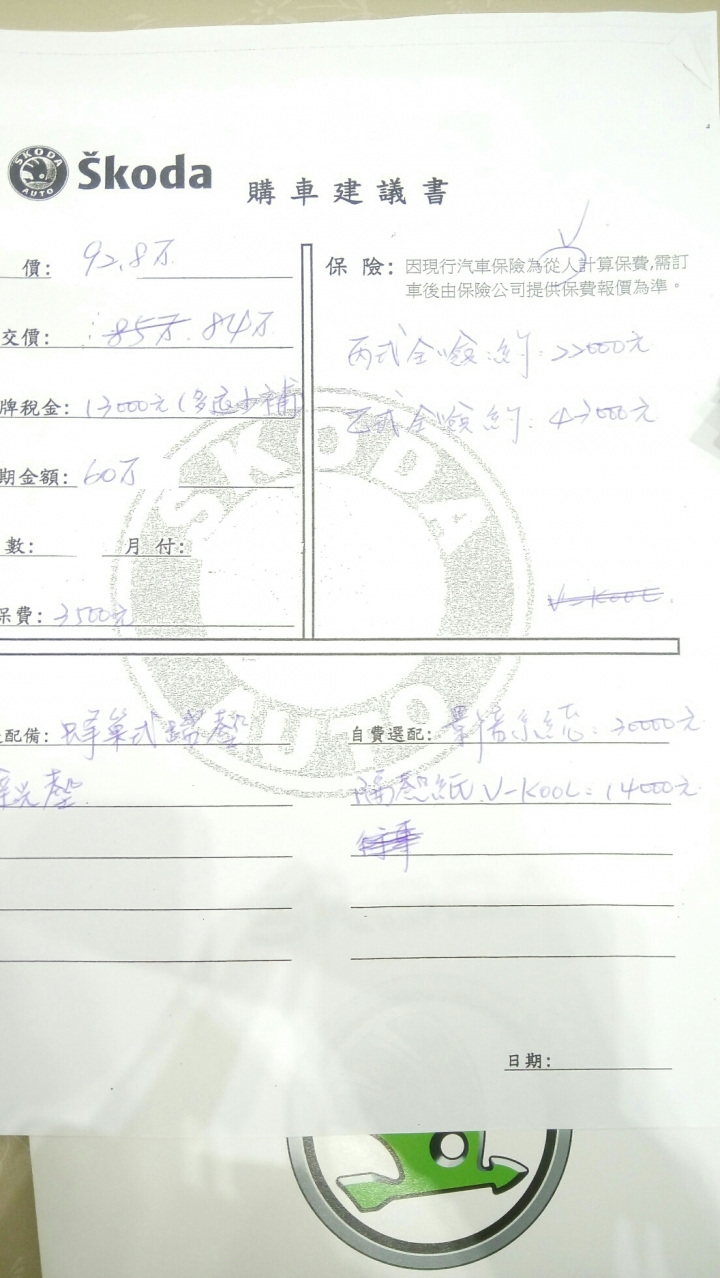 SKODA AUTO
Škoda
購車建議書
價: 92.8万
交價: 85万. 84万
牌稅金: 13000元(多退少補
期金額: 60万
數: 月付:
保費: 3500元
保險: 因現行汽車保險為從人計算保費,需訂
車後由保險公司提供保費報價為準。
丙式全險 約: 22000元
乙式全險 約: 43000元
V-KOOL
SKODA
AUTO
配備:
自費選配: 影音系統: 30000元
隔熱紙 V-KOOL: 14000元
日期: